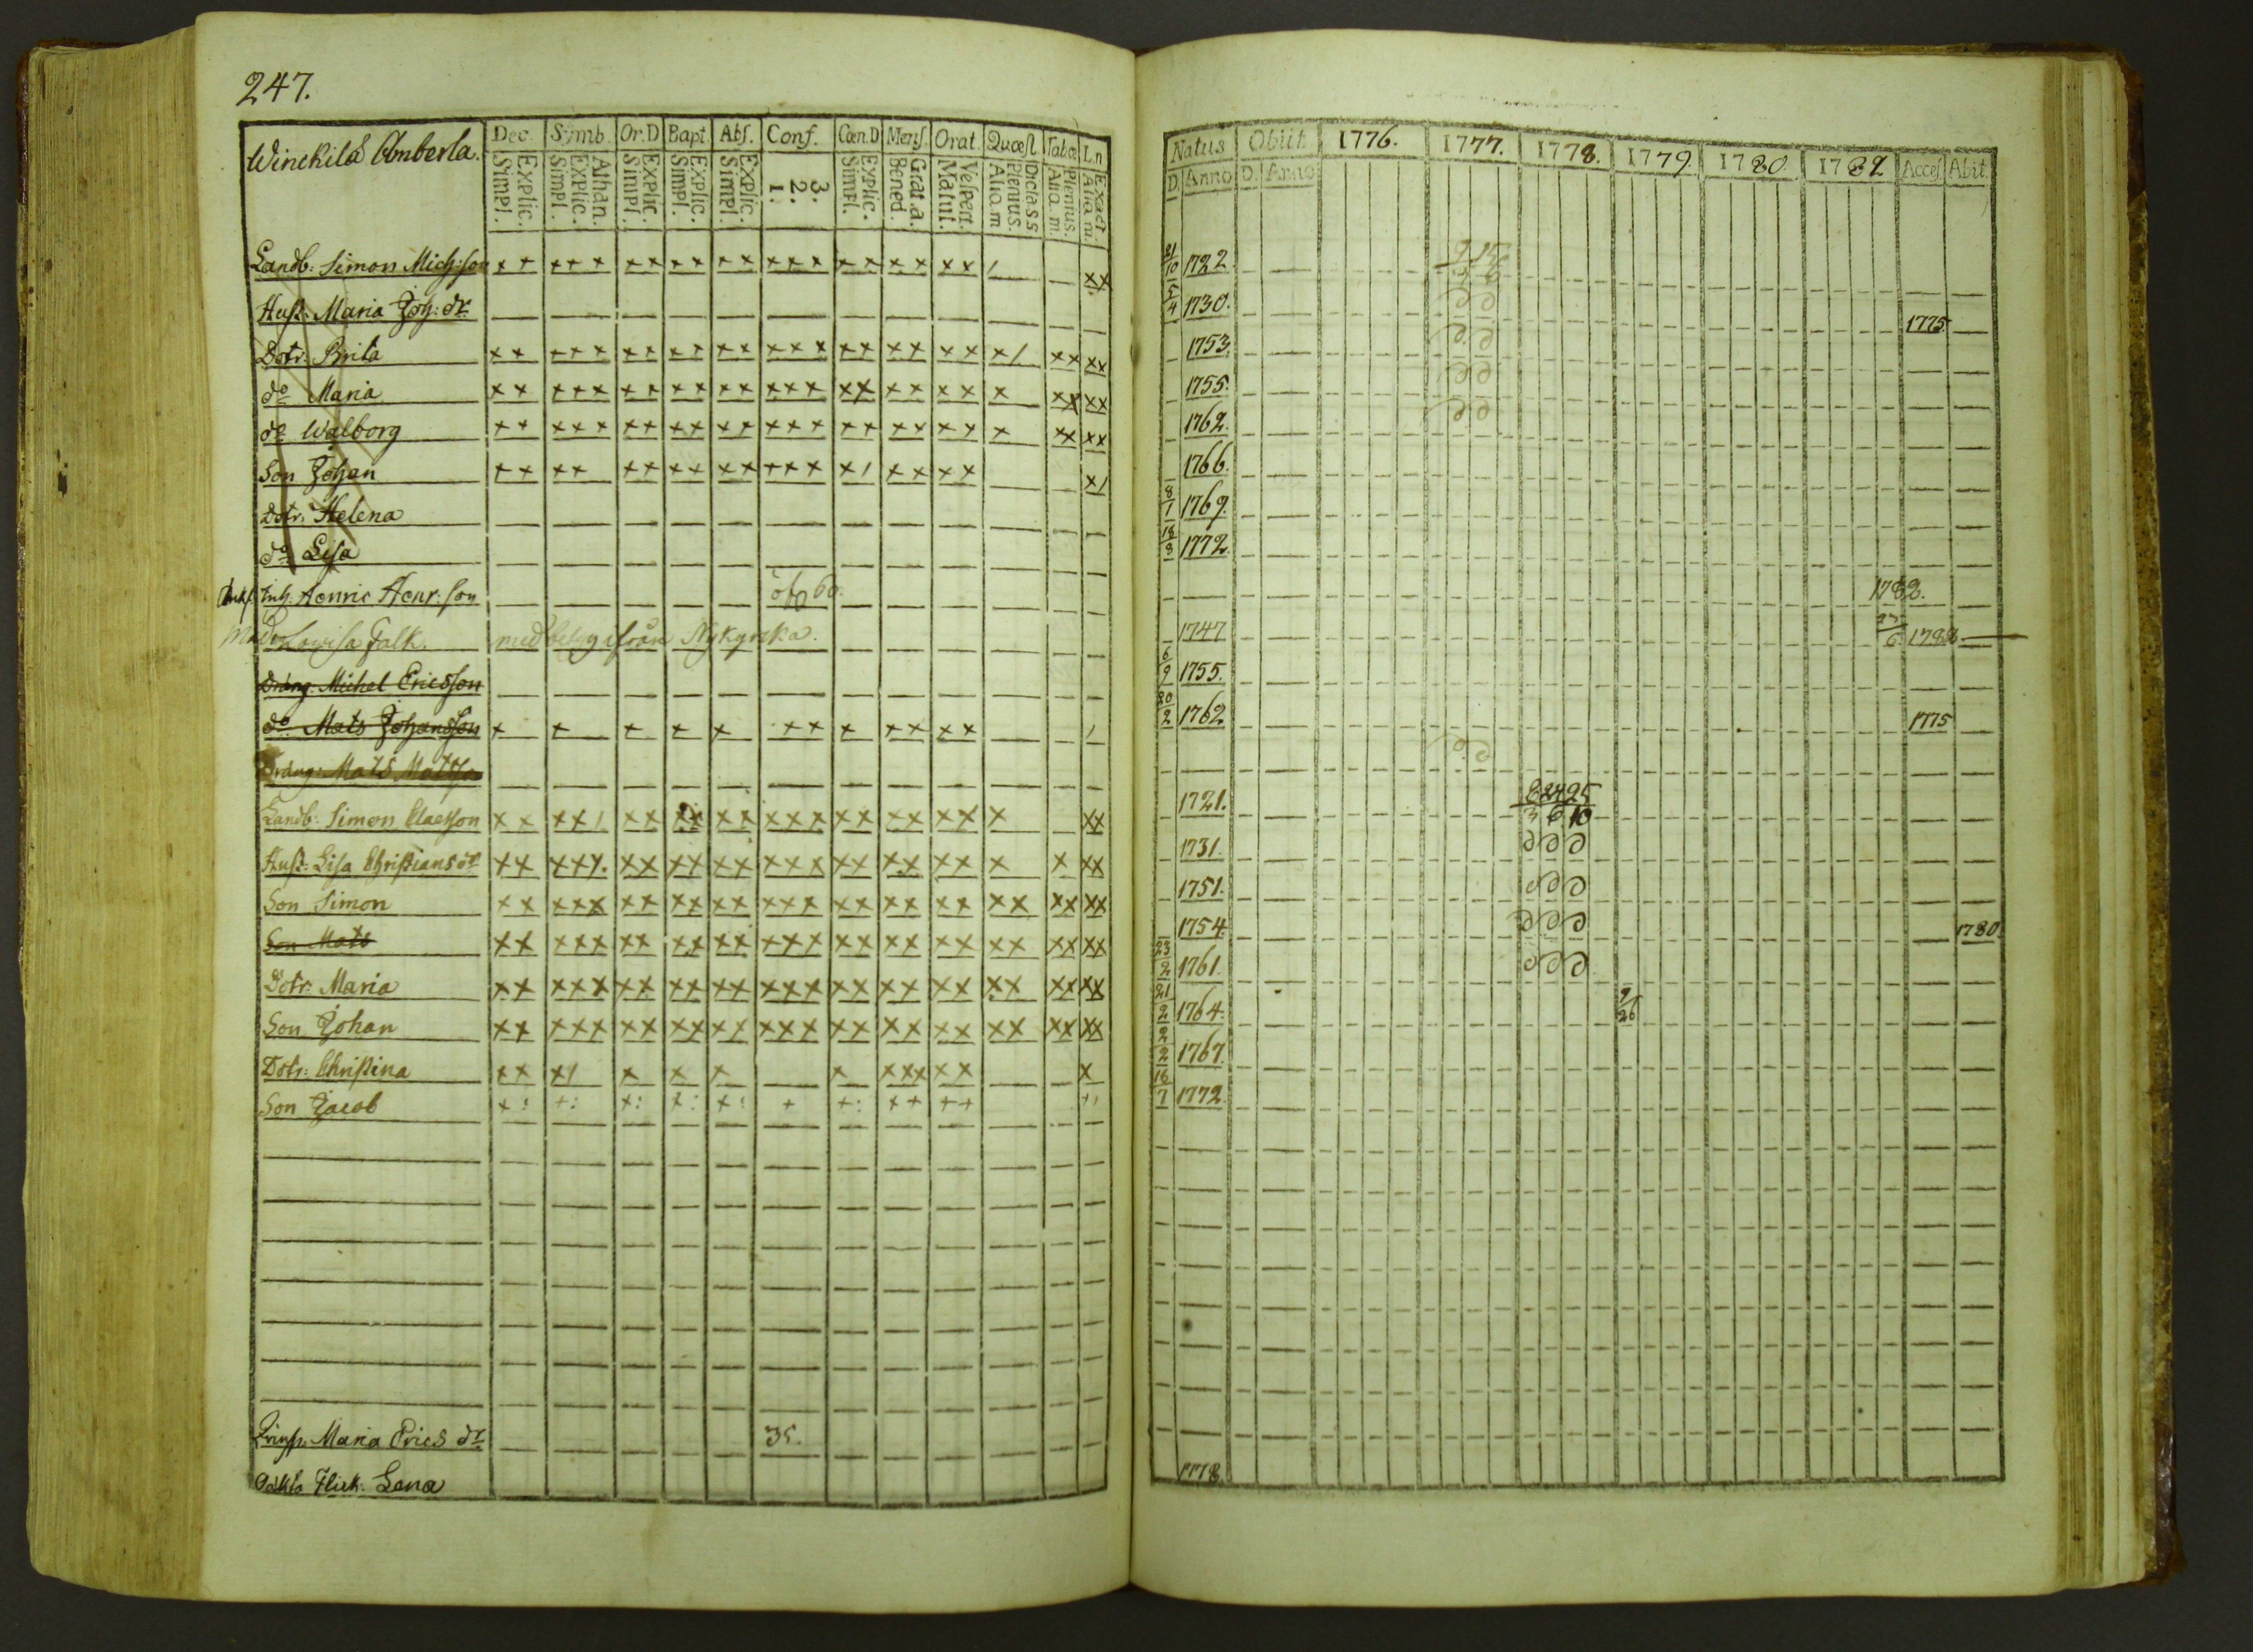 247.
Winckilä Anberla.
Dec. Symb. Or.D Bapt. Abs. Conf. Cœn.D Mens. Orat. Quæst Tabœ L.n
Explic. Simpl. Athan. Explic. Simpl. Explic. Simpl. Explic. Simpl. Explic. Simpl. 3. 2. 1. Explic. Simpl. Grat.a. Bened. Vespert. Matut. Dicta.ss Plenius. Aliq.m Plenius. Aliq.m. Exact. Aliq.m.
Natus Obiit 1776. 1777. 1778. 1779. 1780. 1782 Acces Abit.
D. Anno D. Anno
Landb: Simon Mich:son 21/10 1722.
Hust: Maria Joh: dr 5/4 1730. 1775.
Dotr. Brita 1753.
do Maria 1755.
do Walborg 1762.
Son Johan 1766.
Dotr. Helena 8/1 1769.
do Lisa 18/3 1772.
Inh. Henric Henr: son 1782.
Lovisa Falk. med betyg ifrån Nykyrka. 1747
Dräng. Michel Ericsson 6/9 1755.
do Mats Johansson 20/2 1762 1775
Dräng: Mats Matsson
Landb: Simon Claesson 1721.
Hust: Lisa Christians dr 1731.
Son Simon 1751.
Son Mats 1754. 1780
Dotr: Maria 23/2 1761.
Son Johan 21/2 1764.
Dotr: Christina 2/2 1767.
Son Jacob 16/7 1772.
Maria Erics dr 35.
oäkta Flick: Lena 1778.